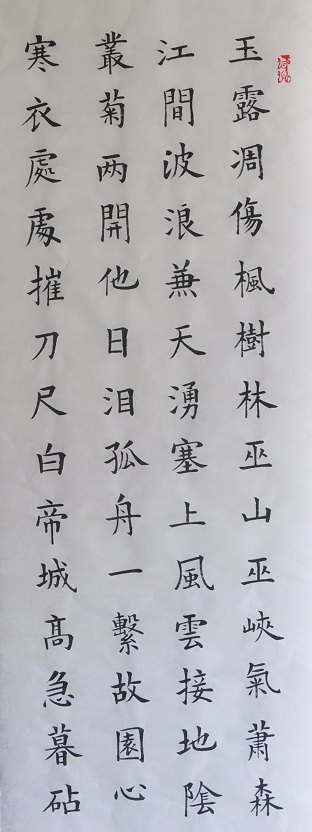 玉露凋傷楓樹林巫山巫峽氣蕭森
江間波浪兼天湧塞上風雲接地隂
叢菊两開他日泪孤舟一繫故園心
寒衣處處摧刀尺白帝城髙急暮砧